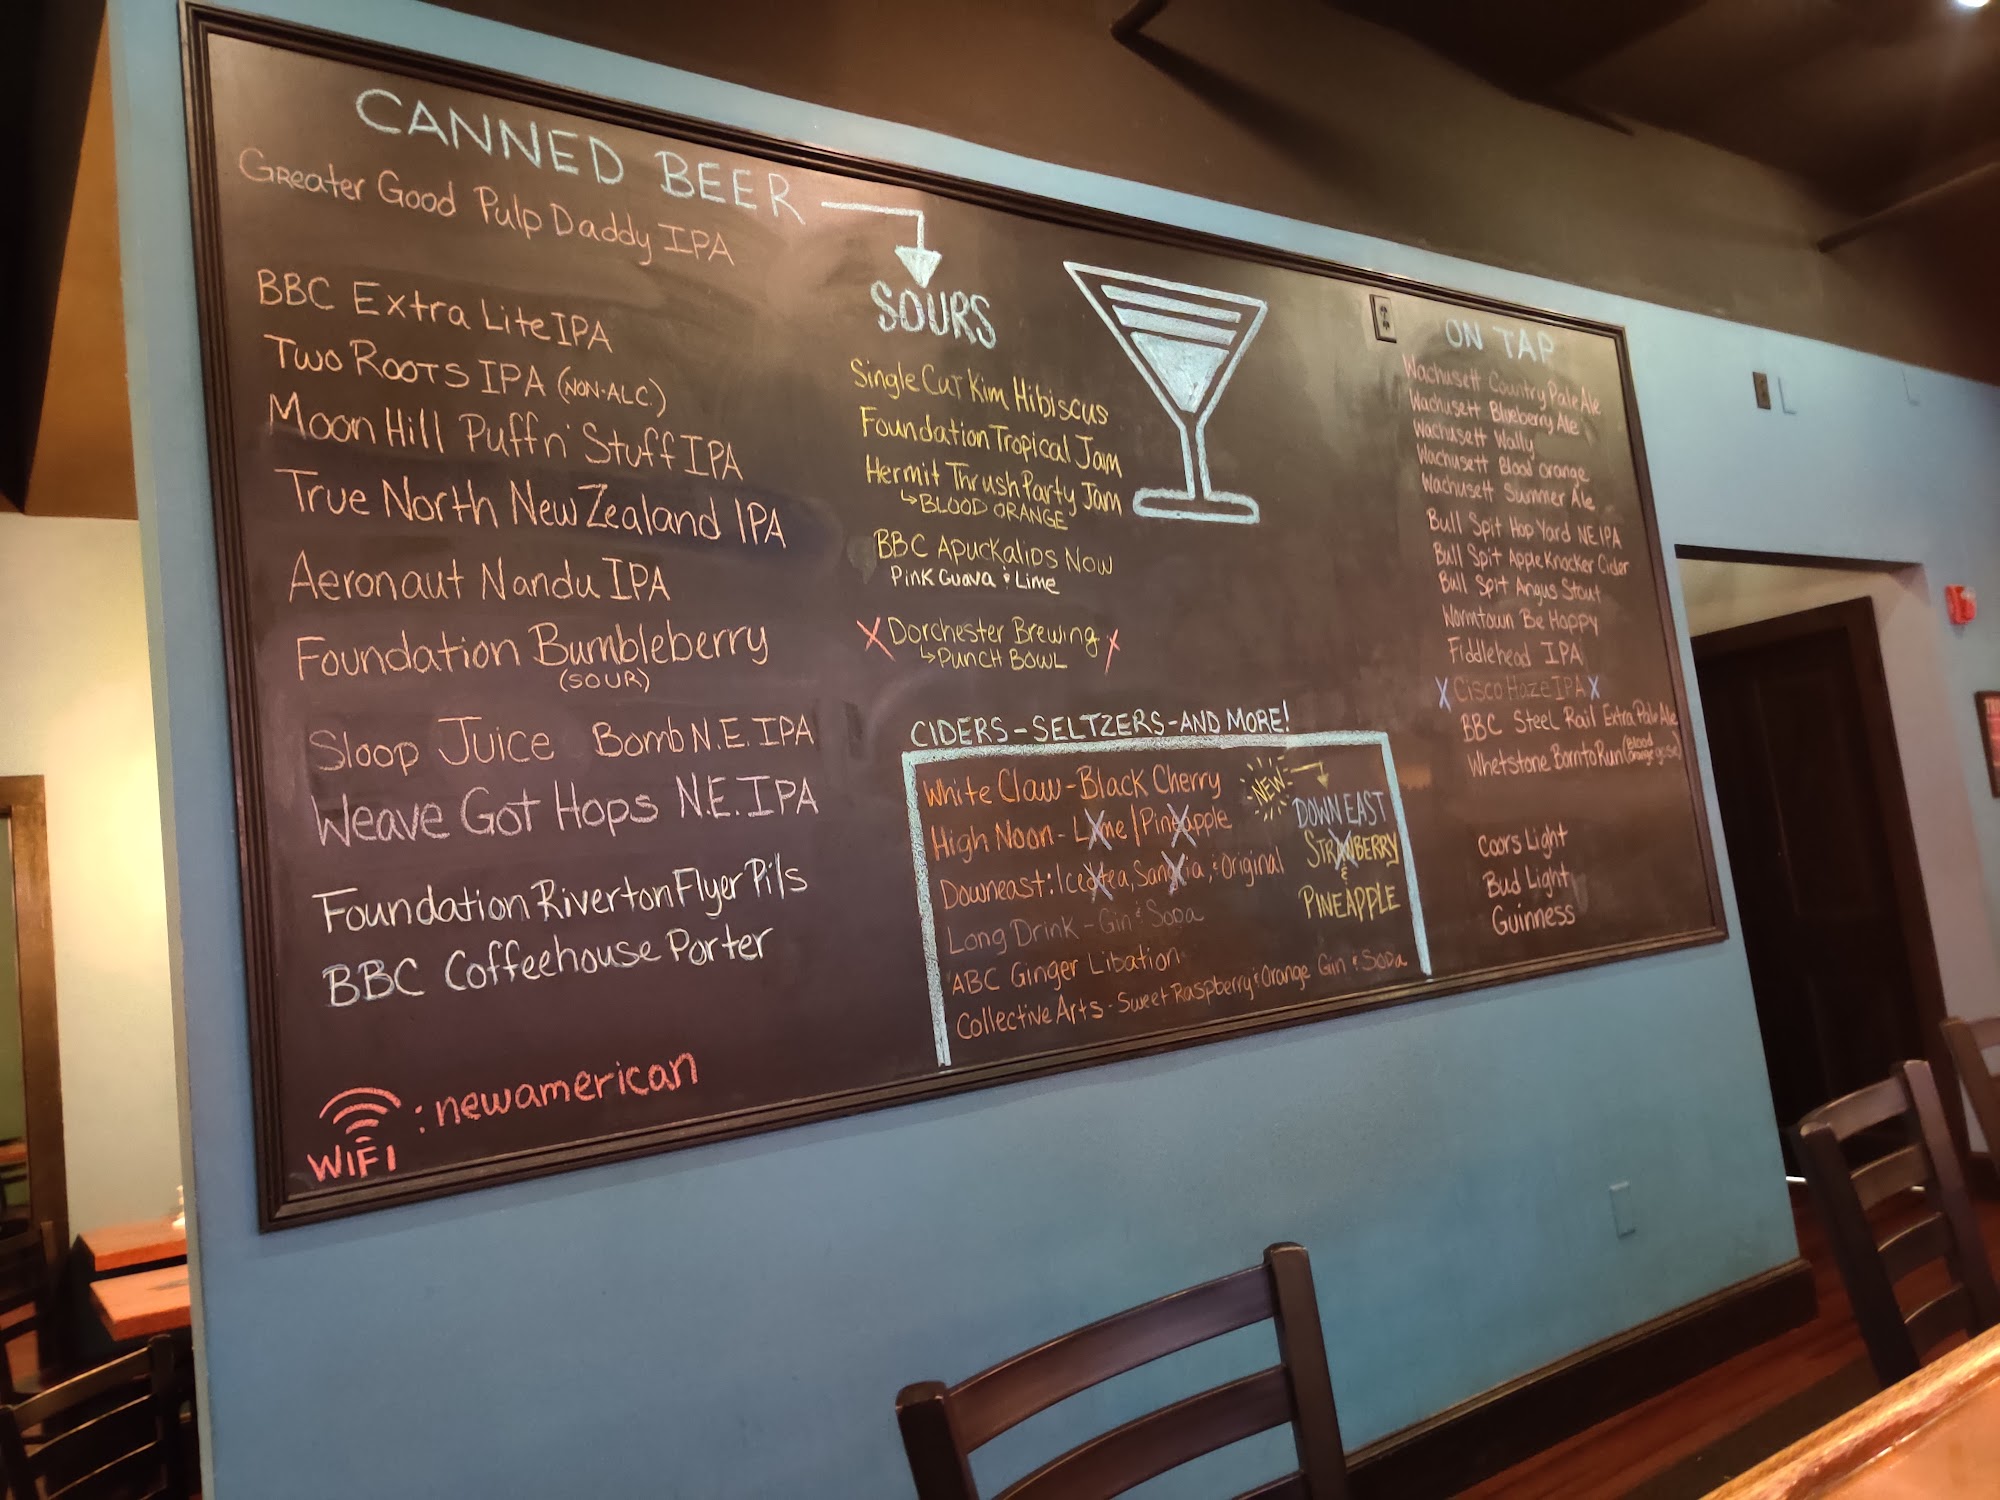 CANNED BEER
Greater Good Pulp Daddy IPA
BBC Extra Lite IPA
Two Roots IPA (NON-ALC.)
Moon Hill Puffn' Stuff IPA
True North New Zealand IPA
Aeronaut Nandu IPA
Foundation Bumbleberry
(SOUR)
Sloop Juice Bomb N.E. IPA
Weave Got Hops N.E. IPA
Foundation Riverton Flyer Pils
BBC Coffeehouse Porter
WIFI : newamerican
SOURS
Single Cut Kim Hibiscus
Foundation Tropical Jam
Hermit Thrush Party Jam
BLOOD ORANGE
BBC Apuckalips Now
Pink Guava & Lime
X Dorchester Brewing X
PUNCH BOWL
CIDERS - SELTZERS - AND MORE!
White Claw - Black Cherry
High Noon - Lime / Pineapple
Downeast: Iced tea, Sangria, & Original
Long Drink - Gin & Soda
ABC Ginger Libation
Collective Arts - Sweet Raspberry & Orange Gin & Soda
NEW
DOWNEAST
STRAWBERRY
&
PINEAPPLE
ON TAP
Wachusett Country Pale Ale
Wachusett Blueberry Ale
Wachusett Wally
Wachusett Blood Orange
Wachusett Summer Ale
Bull Spit Hop Yard NE IPA
Bull Spit Apple Knocker Cider
Bull Spit Angus Stout
Wormtown Be Hoppy
Fiddlehead IPA
X Cisco Haze IPA X
BBC Steel Rail Extra Pale Ale
Whetstone Born to Run (Blood orange gose)
Coors Light
Bud Light
Guinness